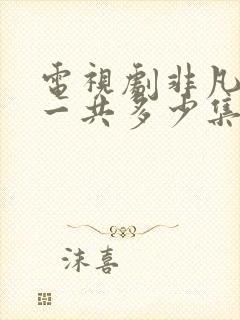 電視劇非凡
一共多少集
沫喜